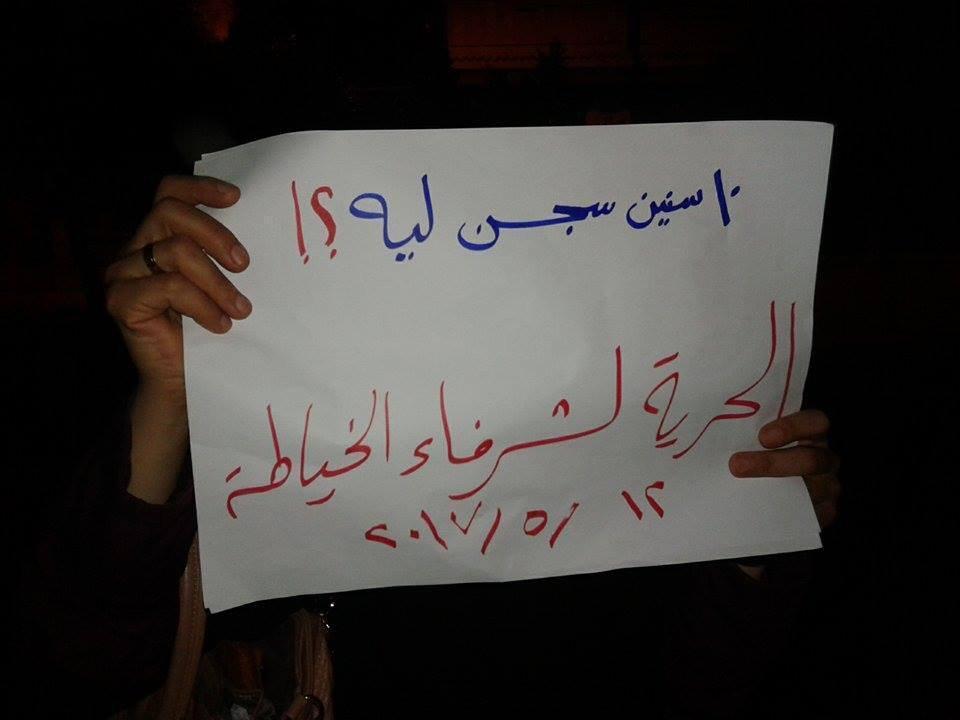 ١٠ سنين سجن ليه ؟!
الحرية لشرفاء الخياطة
١٢ / ٥ / ٢٠١٧